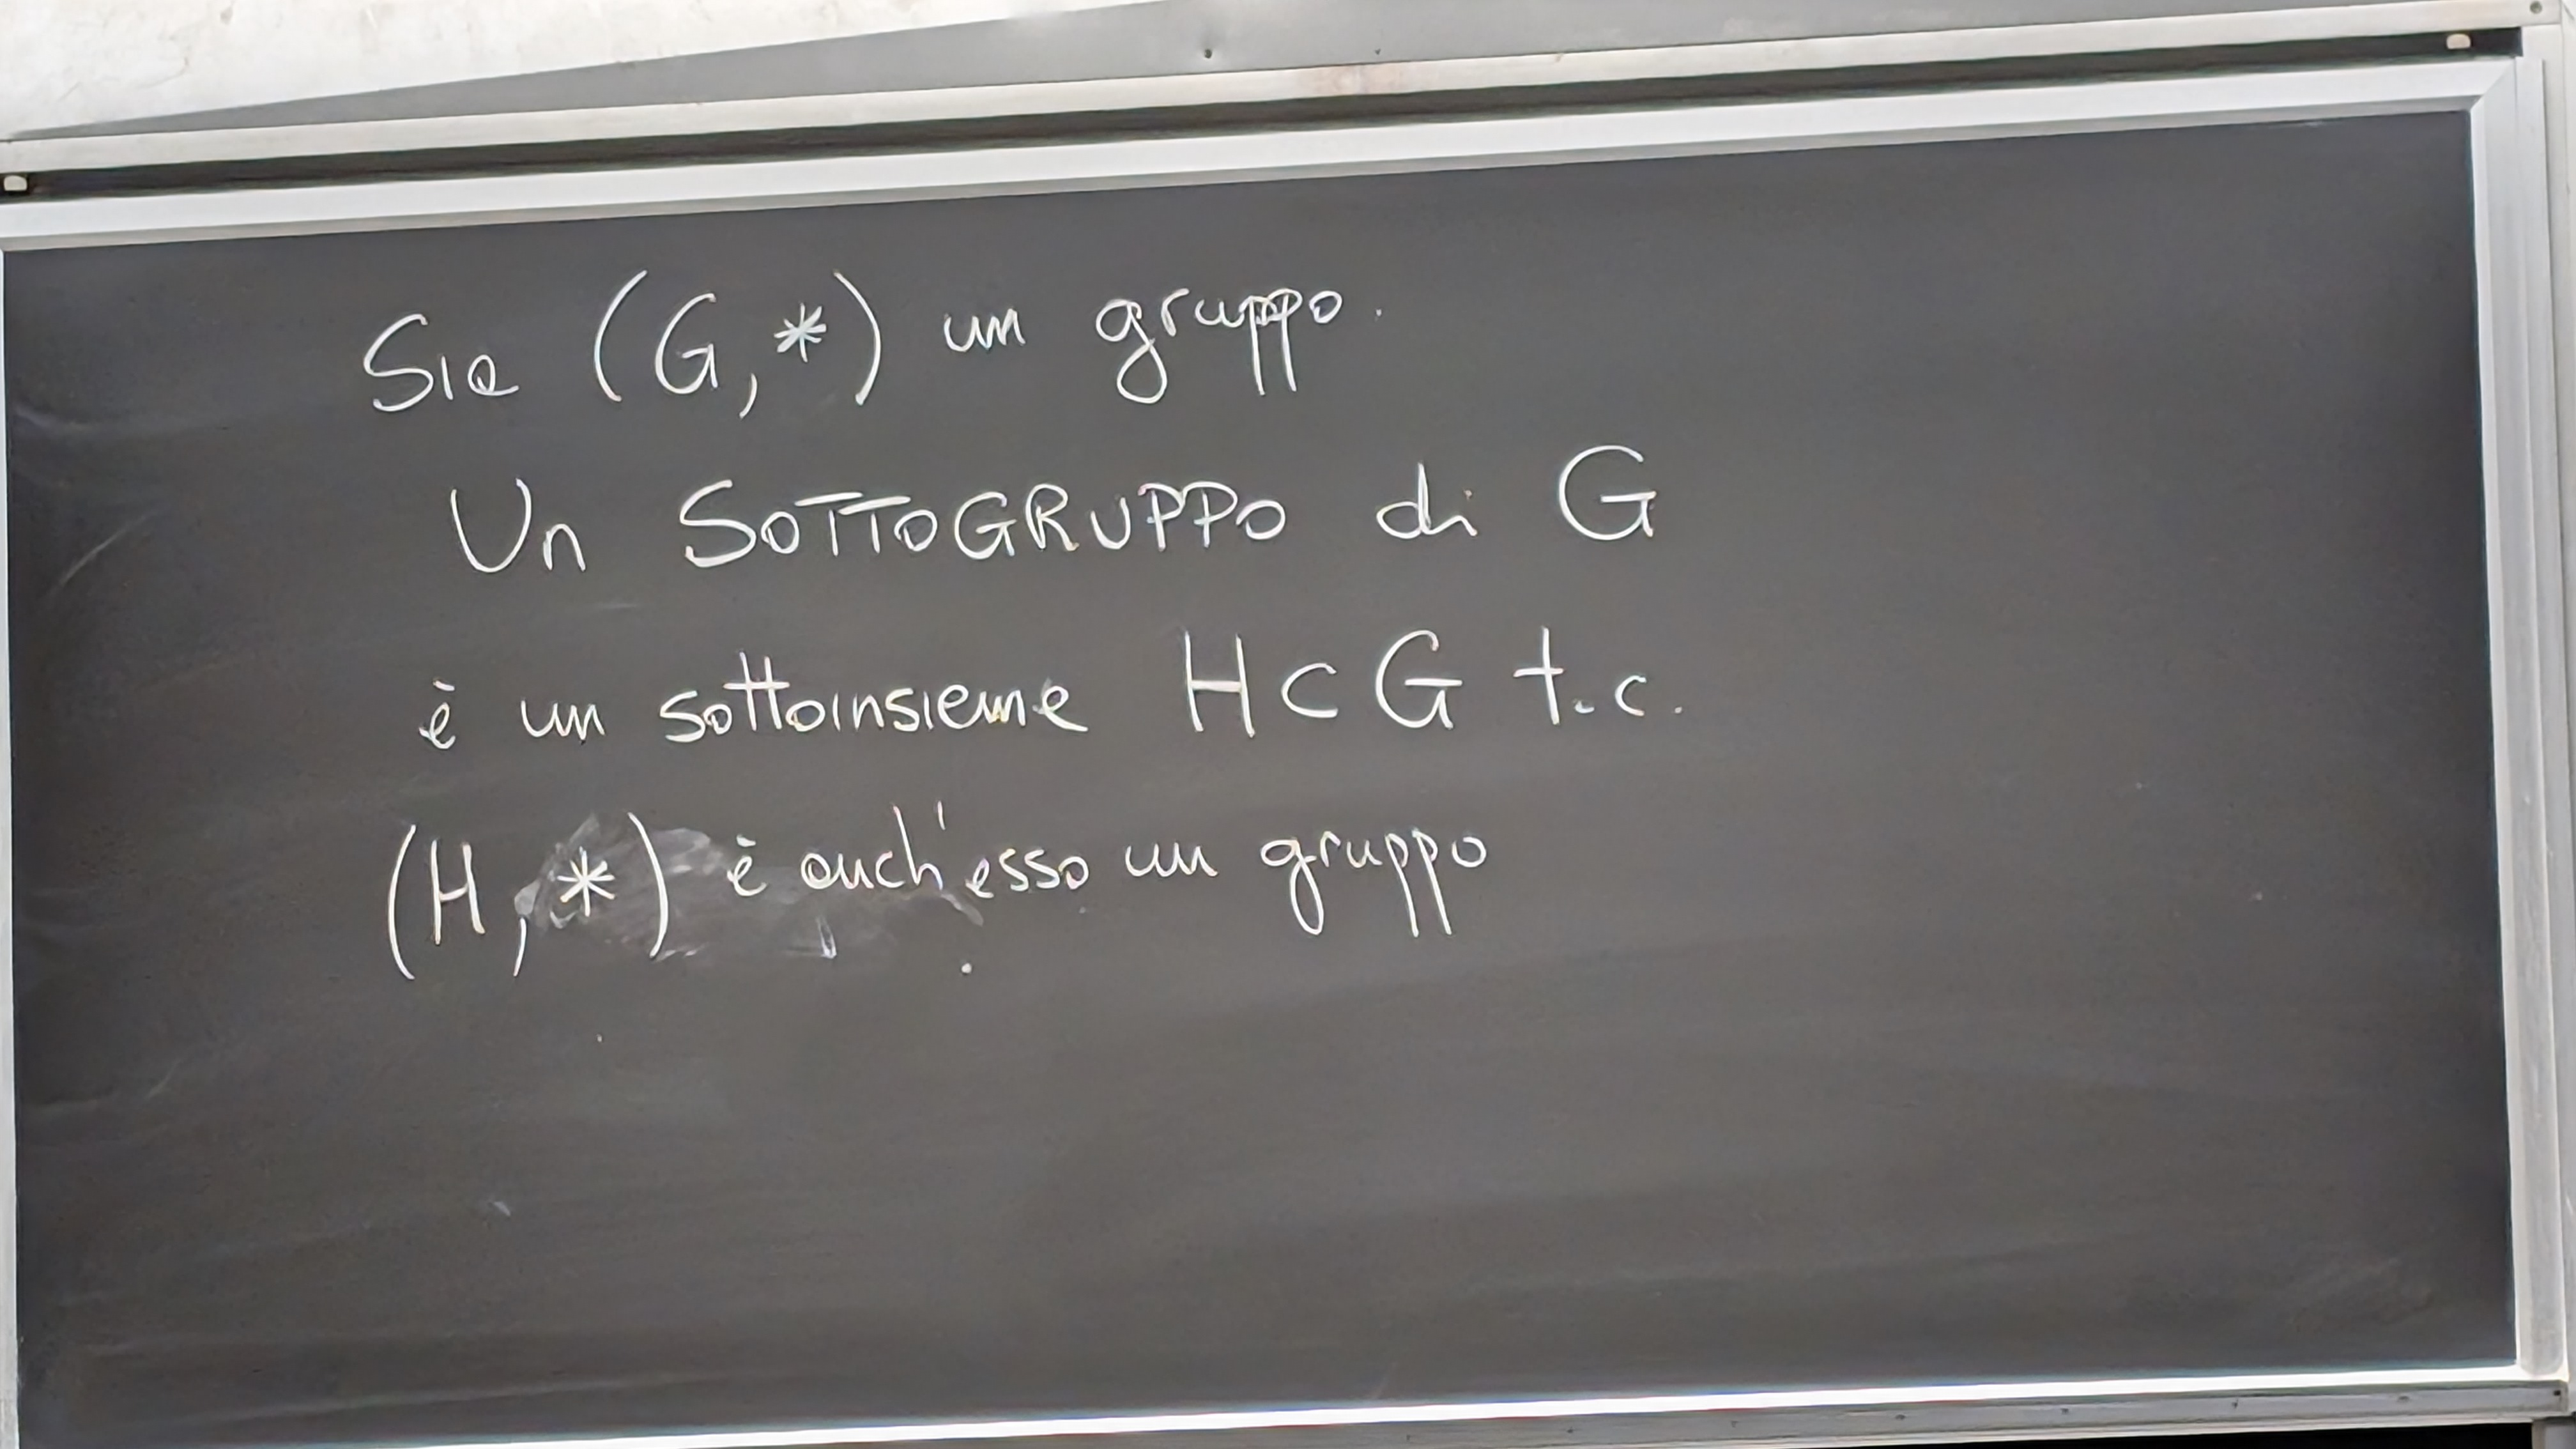 Sia (G,*) un gruppo.
Un SOTTOGRUPPO di G
è un sottoinsieme H⊂G t.c.
(H,*) è anch'esso un gruppo